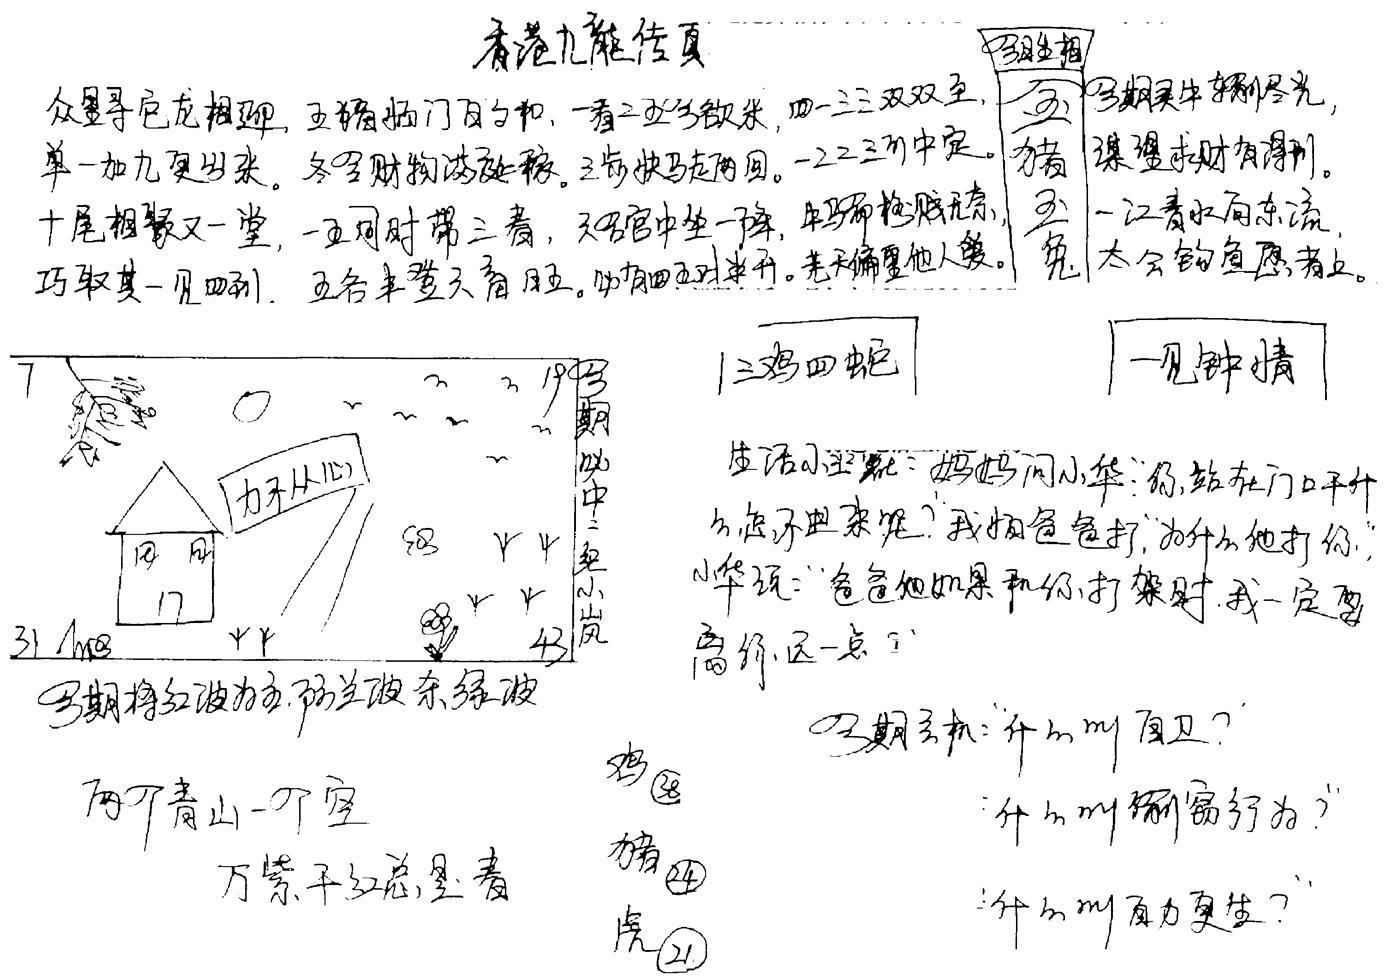 香港九龍传真
今期生相
玉
猪
玉
兔
众星寻它龙相迎，五猪临门百勺和，一看二五今欲米，四一三三双双至，
单一加九更出来。冬今财物满。三步快马走两回。一二二三可中定。
今期美牛
谋望求财有得利。
十尾相聚又一堂，一五同时带三春，中坐一降，贼无奈，
一江春水向东流，
巧取其一见四利．五谷半登天有月五。必有四五对半开。老天偏里他人发。
太公钓鱼愿者上。
7 19
力不从心
17
31 43
今期必中二组小岚
今期将红波为主．防兰波杀绿波
两个青山一个空
万紫千红总是春
鸡 38
猪 24
虎 21
三鸡四蛇
一见钟情
生活小：妈妈问小华：你站在门口干什
么怎不出来呢？我怕爸爸打，为什么他打你，
小华说：爸爸他如果和你打架时．我一定要
离你远一点
今期玄机：什么叫自卫？
什么叫行为？
什么叫自力更生？